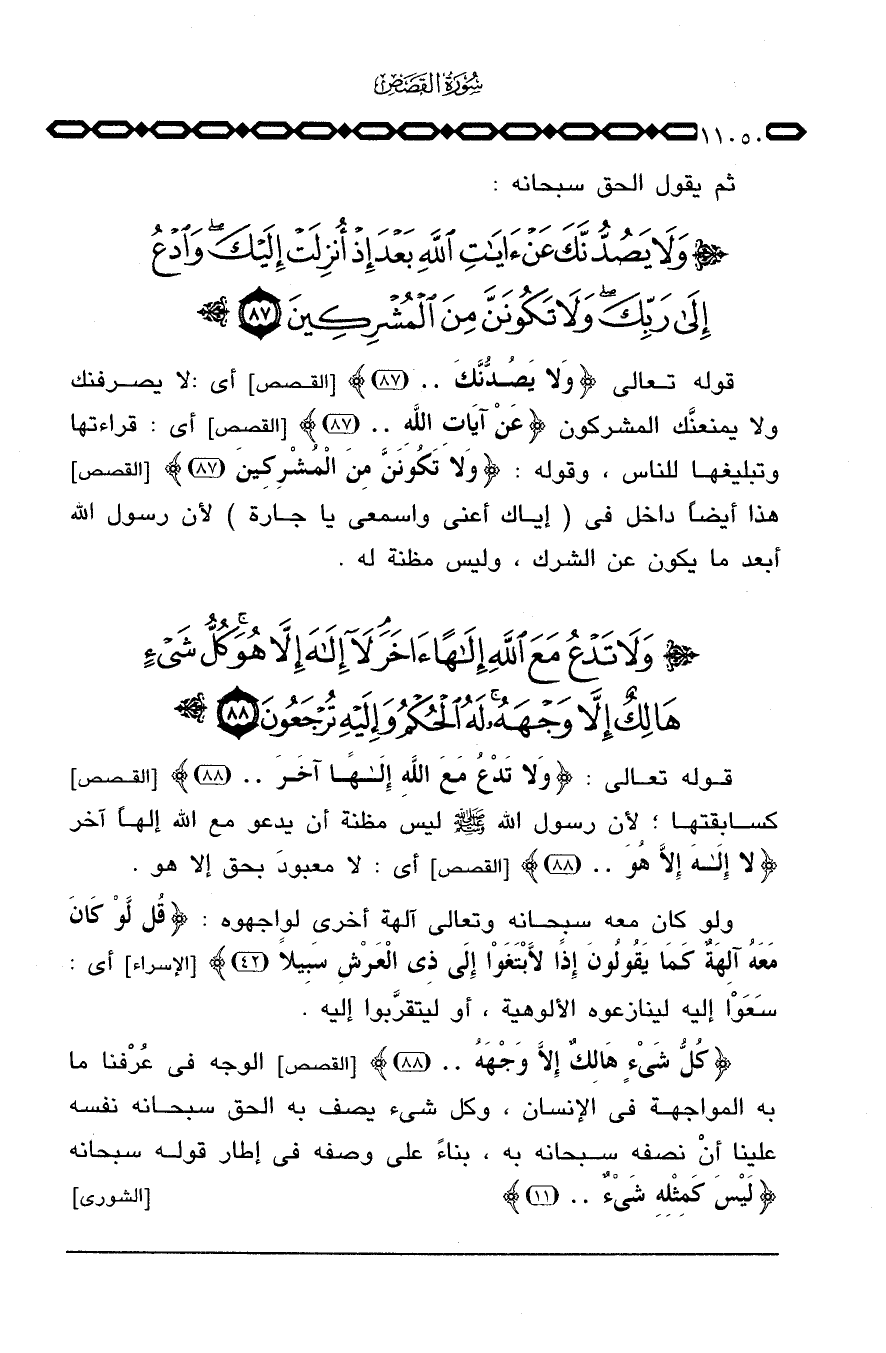 سُورَةُ القَصَصِ
١١٠٥٠
ثم يقول الحق سبحانه :
﴿ وَلَا يَصُدُّنَّكَ عَنْ ءَايَٰتِ ٱللَّهِ بَعْدَ إِذْ أُنزِلَتْ إِلَيْكَ ۖ وَٱدْعُ
إِلَىٰ رَبِّكَ ۖ وَلَا تَكُونَنَّ مِنَ ٱلْمُشْرِكِينَ ٨٧ ﴾
قوله تعالى ﴿ وَلا يَصُدُّنَّكَ .. (٨٧) ﴾ [القصص] أى :لا يصرفنك
ولا يمنعنَّك المشركون ﴿ عَنْ آيَاتِ اللَّهِ .. (٨٧) ﴾ [القصص] أى : قراءتها
وتبليغها للناس ، وقوله : ﴿ وَلا تَكُونَنَّ مِنَ الْمُشْرِكِينَ (٨٧) ﴾ [القصص]
هذا أيضاً داخل فى ( إياك أعنى واسمعى يا جارة ) لأن رسول الله
أبعد ما يكون عن الشرك ، وليس مظنة له .
﴿ وَلَا تَدْعُ مَعَ ٱللَّهِ إِلَٰهًا ءَاخَرَ ۘ لَآ إِلَٰهَ إِلَّا هُوَ ۚ كُلُّ شَىْءٍ
هَالِكٌ إِلَّا وَجْهَهُۥ ۚ لَهُ ٱلْحُكْمُ وَإِلَيْهِ تُرْجَعُونَ ٨٨ ﴾
قوله تعالى : ﴿ وَلا تَدْعُ مَعَ اللَّهِ إِلَٰهًا آخَرَ .. (٨٨) ﴾ [القصص]
كسابقتها ؛ لأن رسول الله ﷺ ليس مظنة أن يدعو مع الله إلهاً آخر
﴿ لا إِلَٰهَ إِلاَّ هُوَ .. (٨٨) ﴾ [القصص] أى : لا معبودَ بحق إلا هو .
ولو كان معه سبحانه وتعالى آلهة أخرى لواجهوه : ﴿ قُل لَّوْ كَانَ
مَعَهُ آلِهَةٌ كَمَا يَقُولُونَ إِذًا لاَّبْتَغَوْا إِلَى ذِى الْعَرْشِ سَبِيلاً (٤٢) ﴾ [الإسراء] أى :
سَعَوْا إليه لينازعوه الألوهية ، أو ليتقرَّبوا إليه .
﴿ كُلُّ شَىْءٍ هَالِكٌ إِلاَّ وَجْهَهُ .. (٨٨) ﴾ [القصص] الوجه فى عُرْفنا ما
به المواجهة فى الإنسان ، وكل شىء يصف به الحق سبحانه نفسه
علينا أنْ نصفه سبحانه به ، بناءً على وصفه فى إطار قوله سبحانه
﴿ لَيْسَ كَمِثْلِهِ شَىْءٌ .. (١١) ﴾ [الشورى]